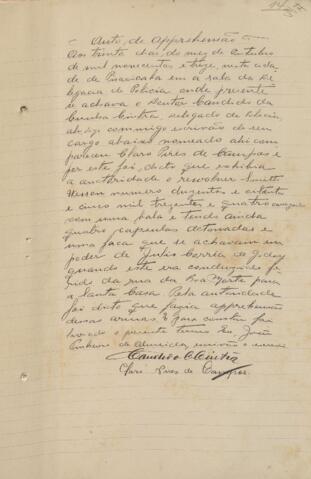 Auto de Apprehensão
Aos trinta dias do mez de Outubro
de mil novecentos e treze, nesta cida
de de Piracicaba em a sala da De
legacia de Policia onde presente
se achava o Doutor Candido da
Cunha Cintra, delegado de Policia,
commigo escrivão de seu
cargo abaixo nomeado ahi com
pareceu Claro Pires de Campos e
por este foi dito que exhibia
a autoridade o revolver Smith
Wesson numero duzentos e oitenta
e cinco mil trezentos e quatro
com uma bala e tendo ainda
quatro capsulas detonadas e
uma faca que se achavam em
poder de Julio Correia de Godoy
quando este era conduzido fe
rido da rua da Boa Morte para
a Santa Casa. Pela autoridade
foi dito que fazia apprehensão
dessas armas. E para constar foi
lavrado o presente termo. Eu, João
de Almeida, escrivão o escrevi
Candido C Cintra
Claro Pires de Campos